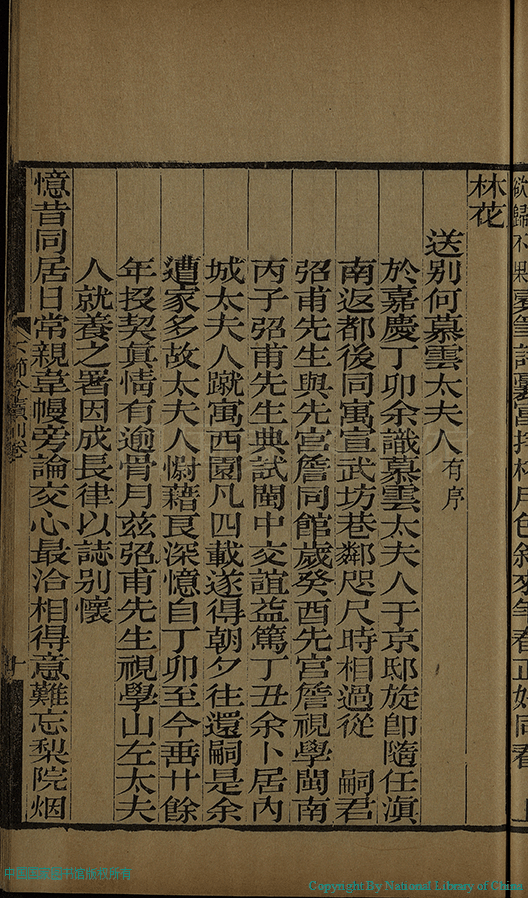 林花
送別何慕雲太夫人有序
於嘉慶丁卯余識慕雲太夫人于京邸旋卽隨任滇
南返都後同寓宣武坊巷鄰咫尺時相過從　嗣君
弨甫先生與先宮詹同館歲癸酉先宮詹視學閩南
丙子弨甫先生典試閩中交誼益篤丁丑余卜居內
城太夫人蹴寓西園凡四載遂得朝夕往還嗣是余
遭家多故太夫人慰藉良深憶自丁卯至今垂廿餘
年投契眞情有逾骨月茲弨甫先生視學山左太夫
人就養之署因成長律以誌別懷
憶昔同居日常親葦幔旁論交心最洽相得意難忘梨院烟
十
中国国家图书馆版权所有
Copyright By National Library of China